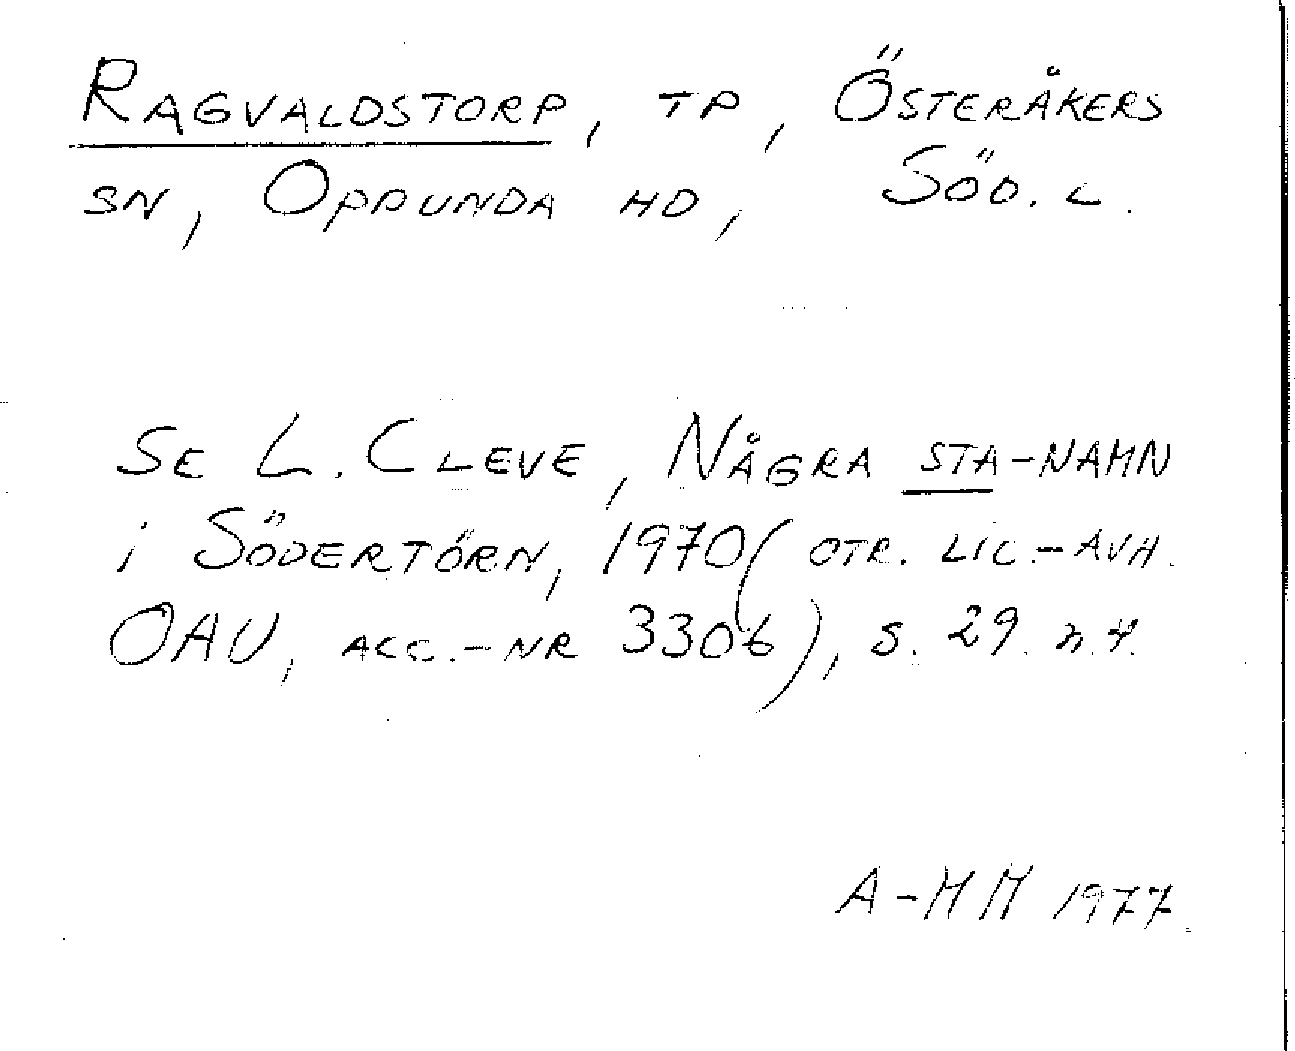 RAGVALDSTORP, TP, ÖSTERÅKERS
SN, OPPUNDA HD, SÖD. L.
SE L. CLEVE, NÅGRA STA-NAMN
i SÖDERTÖRN, 1970 (OTR. LIC.-AVH.
OAU, ACC.-NR 3306), S. 29 n.4.
A-MM 1977.